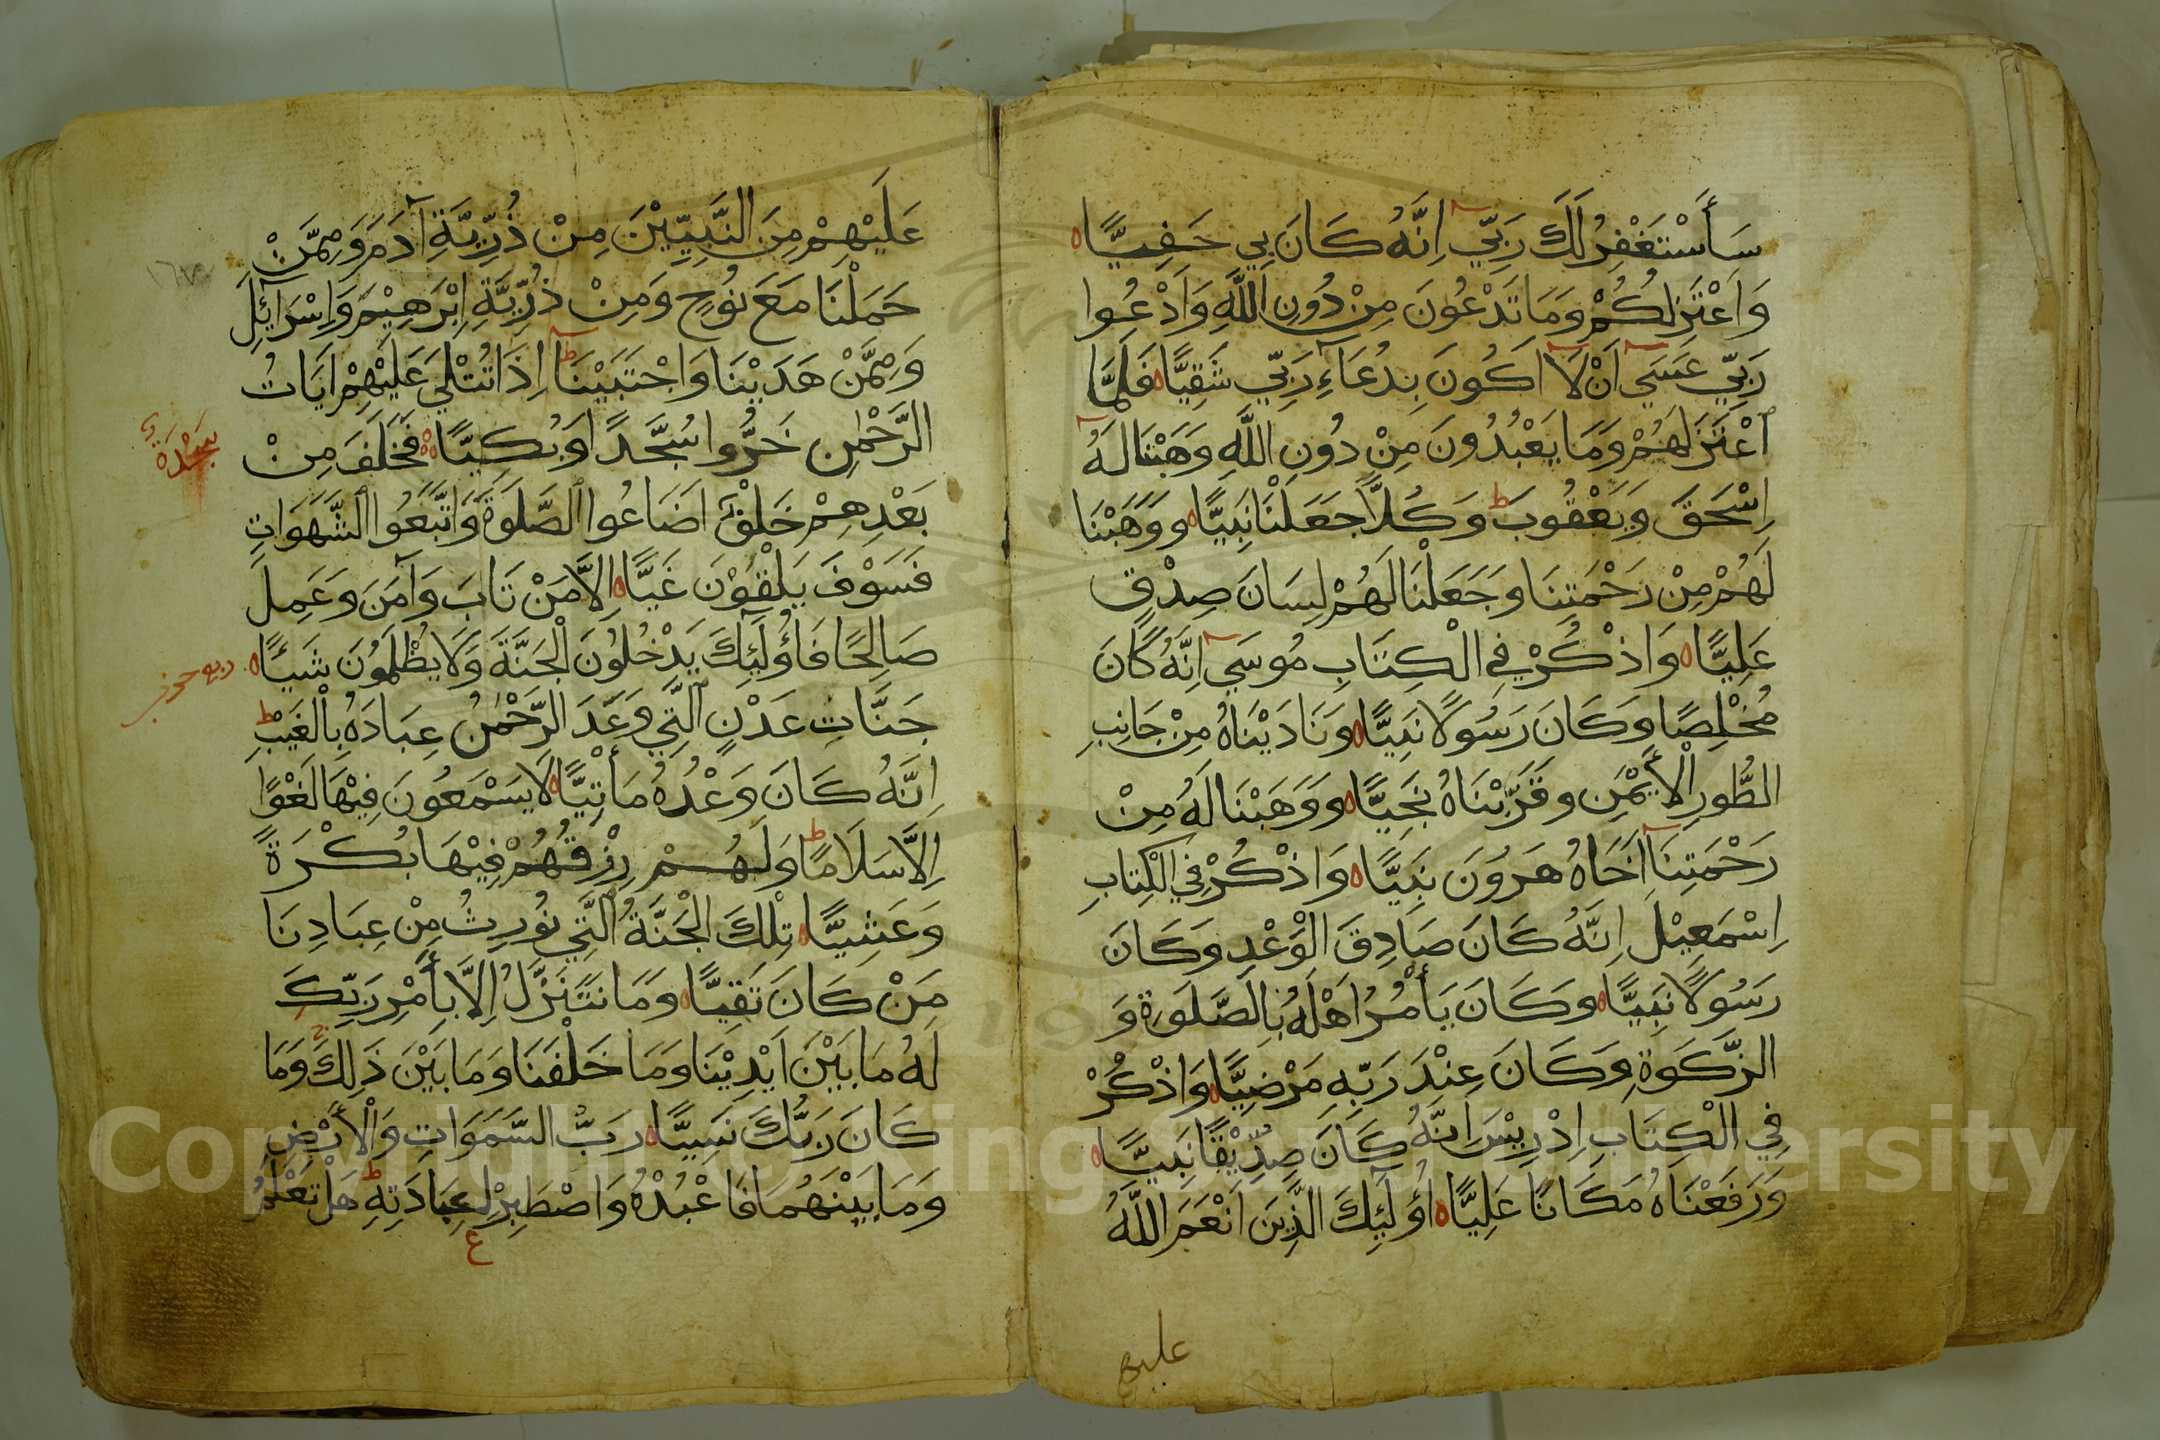 سَأَسْتَغْفِرُ لَكَ رَبِّيٓ اِنَّهُ كَانَ بِي حَفِيًّا
وَاَعْتَزِلُكُمْ وَمَا تَدْعُونَ مِنْ دُونِ اللَّهِ وَاَدْعُوا
رَبِّي عَسَىٓ اَنْ لَآ اَكُونَ بِدُعَآءِ رَبِّي شَقِيًّا فَلَمَّا
اعْتَزَلَهُمْ وَمَا يَعْبُدُونَ مِنْ دُونِ اللَّهِ وَهَبْنَا لَهُٓ
اِسْحَقَ وَيَعْقُوبَ ط وَكُلًّا جَعَلْنَا نَبِيًّا وَوَهَبْنَا
لَهُمْ مِنْ رَحْمَتِنَا وَجَعَلْنَا لَهُمْ لِسَانَ صِدْقٍ
عَلِيًّا وَاذْكُرْ فِي الْكِتَابِ مُوسَىٓ اِنَّهُ كَانَ
مُخْلِصًا وَكَانَ رَسُولًا نَبِيًّا وَنَادَيْنَاهُ مِنْ جَانِبِ
الطُّورِ الْأَيْمَنِ وَقَرَّبْنَاهُ نَجِيًّا وَوَهَبْنَا لَهُ مِنْ
رَحْمَتِنَآ اَخَاهُ هَرُونَ نَبِيًّا وَاذْكُرْ فِي الْكِتَابِ
اِسْمَعِيْلَ اِنَّهُ كَانَ صَادِقَ الْوَعْدِ وَكَانَ
رَسُولًا نَبِيًّا وَكَانَ يَأْمُرُ اَهْلَهُ بِالصَّلَوةِ وَ
الزَّكَوةِ وَكَانَ عِنْدَ رَبِّهِ مَرْضِيًّا وَاذْكُرْ
فِي الْكِتَابِ اِدْرِيْسَ اِنَّهُ كَانَ صِدِّيْقًا نَبِيًّا
وَرَفَعْنَاهُ مَكَانًا عَلِيًّا اُولَٓئِكَ الَّذِينَ اَنْعَمَ اللَّهُ
عليهم
عَلَيْهِمْ مِنَ النَّبِيِّيْنَ مِنْ ذُرِّيَّةِ آدَمَ وَمِمَّنْ
١٦٧
حَمَلْنَا مَعَ نُوحٍ وَمِنْ ذُرِّيَّةِ اِبْرَهِيْمَ وَاِسْرَآئِلَ
وَمِمَّنْ هَدَيْنَا وَاجْتَبَيْنَا ط اِذَا تُتْلَى عَلَيْهِمْ اَيَاتُ
الرَّحْمٰنِ خَرُّوا سُجَّدًا وَبُكِيًّا فَخَلَفَ مِنْ
سَجْدَة
بَعْدِهِمْ خَلْفٌ اَضَاعُوا الصَّلَوةَ وَاتَّبَعُوا الشَّهَوَاتِ
فَسَوْفَ يَلْقَوْنَ غَيًّا اِلَّا مَنْ تَابَ وَآمَنَ وَعَمِلَ
صَالِحًا فَاُولَٓئِكَ يَدْخُلُونَ الْجَنَّةَ وَلَا يُظْلَمُونَ شَيْئًا
جَنَّاتِ عَدْنٍ الَّتِي وَعَدَ الرَّحْمٰنُ عِبَادَهُ بِالْغَيْبِ ط
اِنَّهُ كَانَ وَعْدُهُ مَأْتِيًّا لَا يَسْمَعُونَ فِيْهَا لَغْوًا
اِلَّا سَلَامًا ط وَلَهُمْ رِزْقُهُمْ فِيْهَا بُكْرَةً
وَعَشِيًّا تِلْكَ الْجَنَّةُ الَّتِي نُورِثُ مِنْ عِبَادِنَا
مَنْ كَانَ تَقِيًّا وَمَا نَتَنَزَّلُ اِلَّا بِأَمْرِ رَبِّكَ ج
لَهُ مَا بَيْنَ اَيْدِيْنَا وَمَا خَلْفَنَا وَمَا بَيْنَ ذَلِكَ ج وَمَا
كَانَ رَبُّكَ نَسِيًّا رَبُّ السَّمَوَاتِ وَالْأَرْضِ
وَمَا بَيْنَهُمَا فَاعْبُدْهُ وَاصْطَبِرْ لِعِبَادَتِهِ ط هَلْ تَعْلَمُ
ع
Copyright © King Saud University